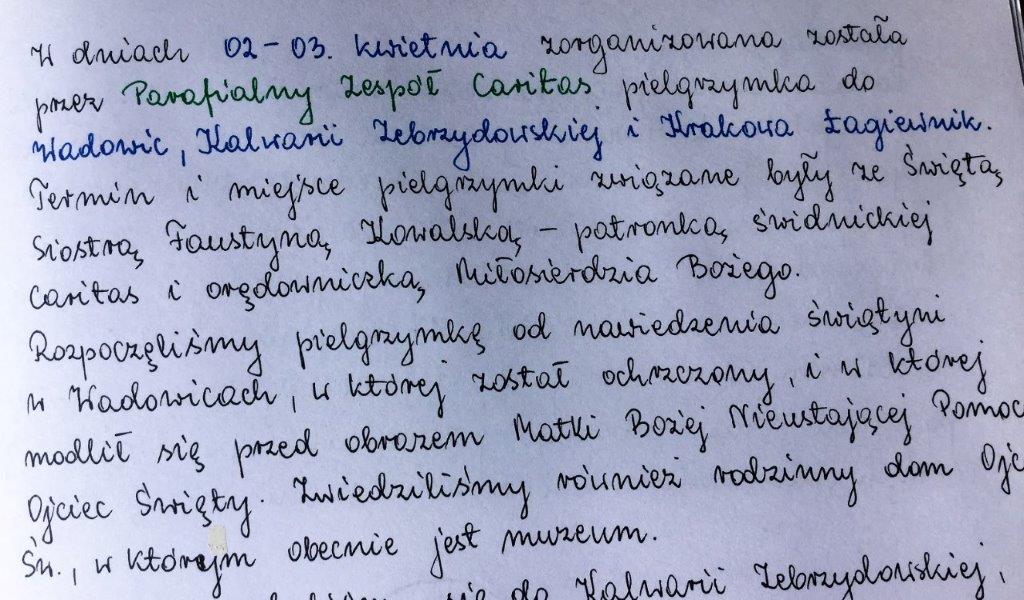 W dniach 02-03. kwietnia zorganizowana została
przez Parafialny Zespół Caritas pielgrzymka do
Wadowic, Kalwarii Zebrzydowskiej i Krakowa Łagiewnik.
Termin i miejsce pielgrzymki związane były ze Świętą
Siostrą Faustyną Kowalską - patronką świdnickiej
Caritas i orędowniczką Miłosierdzia Bożego.
Rozpoczęliśmy pielgrzymkę od nawiedzenia świątyni
w Wadowicach, w której został ochrzczony, i w której
modlił się przed obrazem Matki Bożej Nieustającej Pomoc
Ojciec Święty. Zwiedziliśmy również rodzinny dom Ojc
Św., w którym obecnie jest muzeum.
się do Kalwarii Zebrzydowskiej,